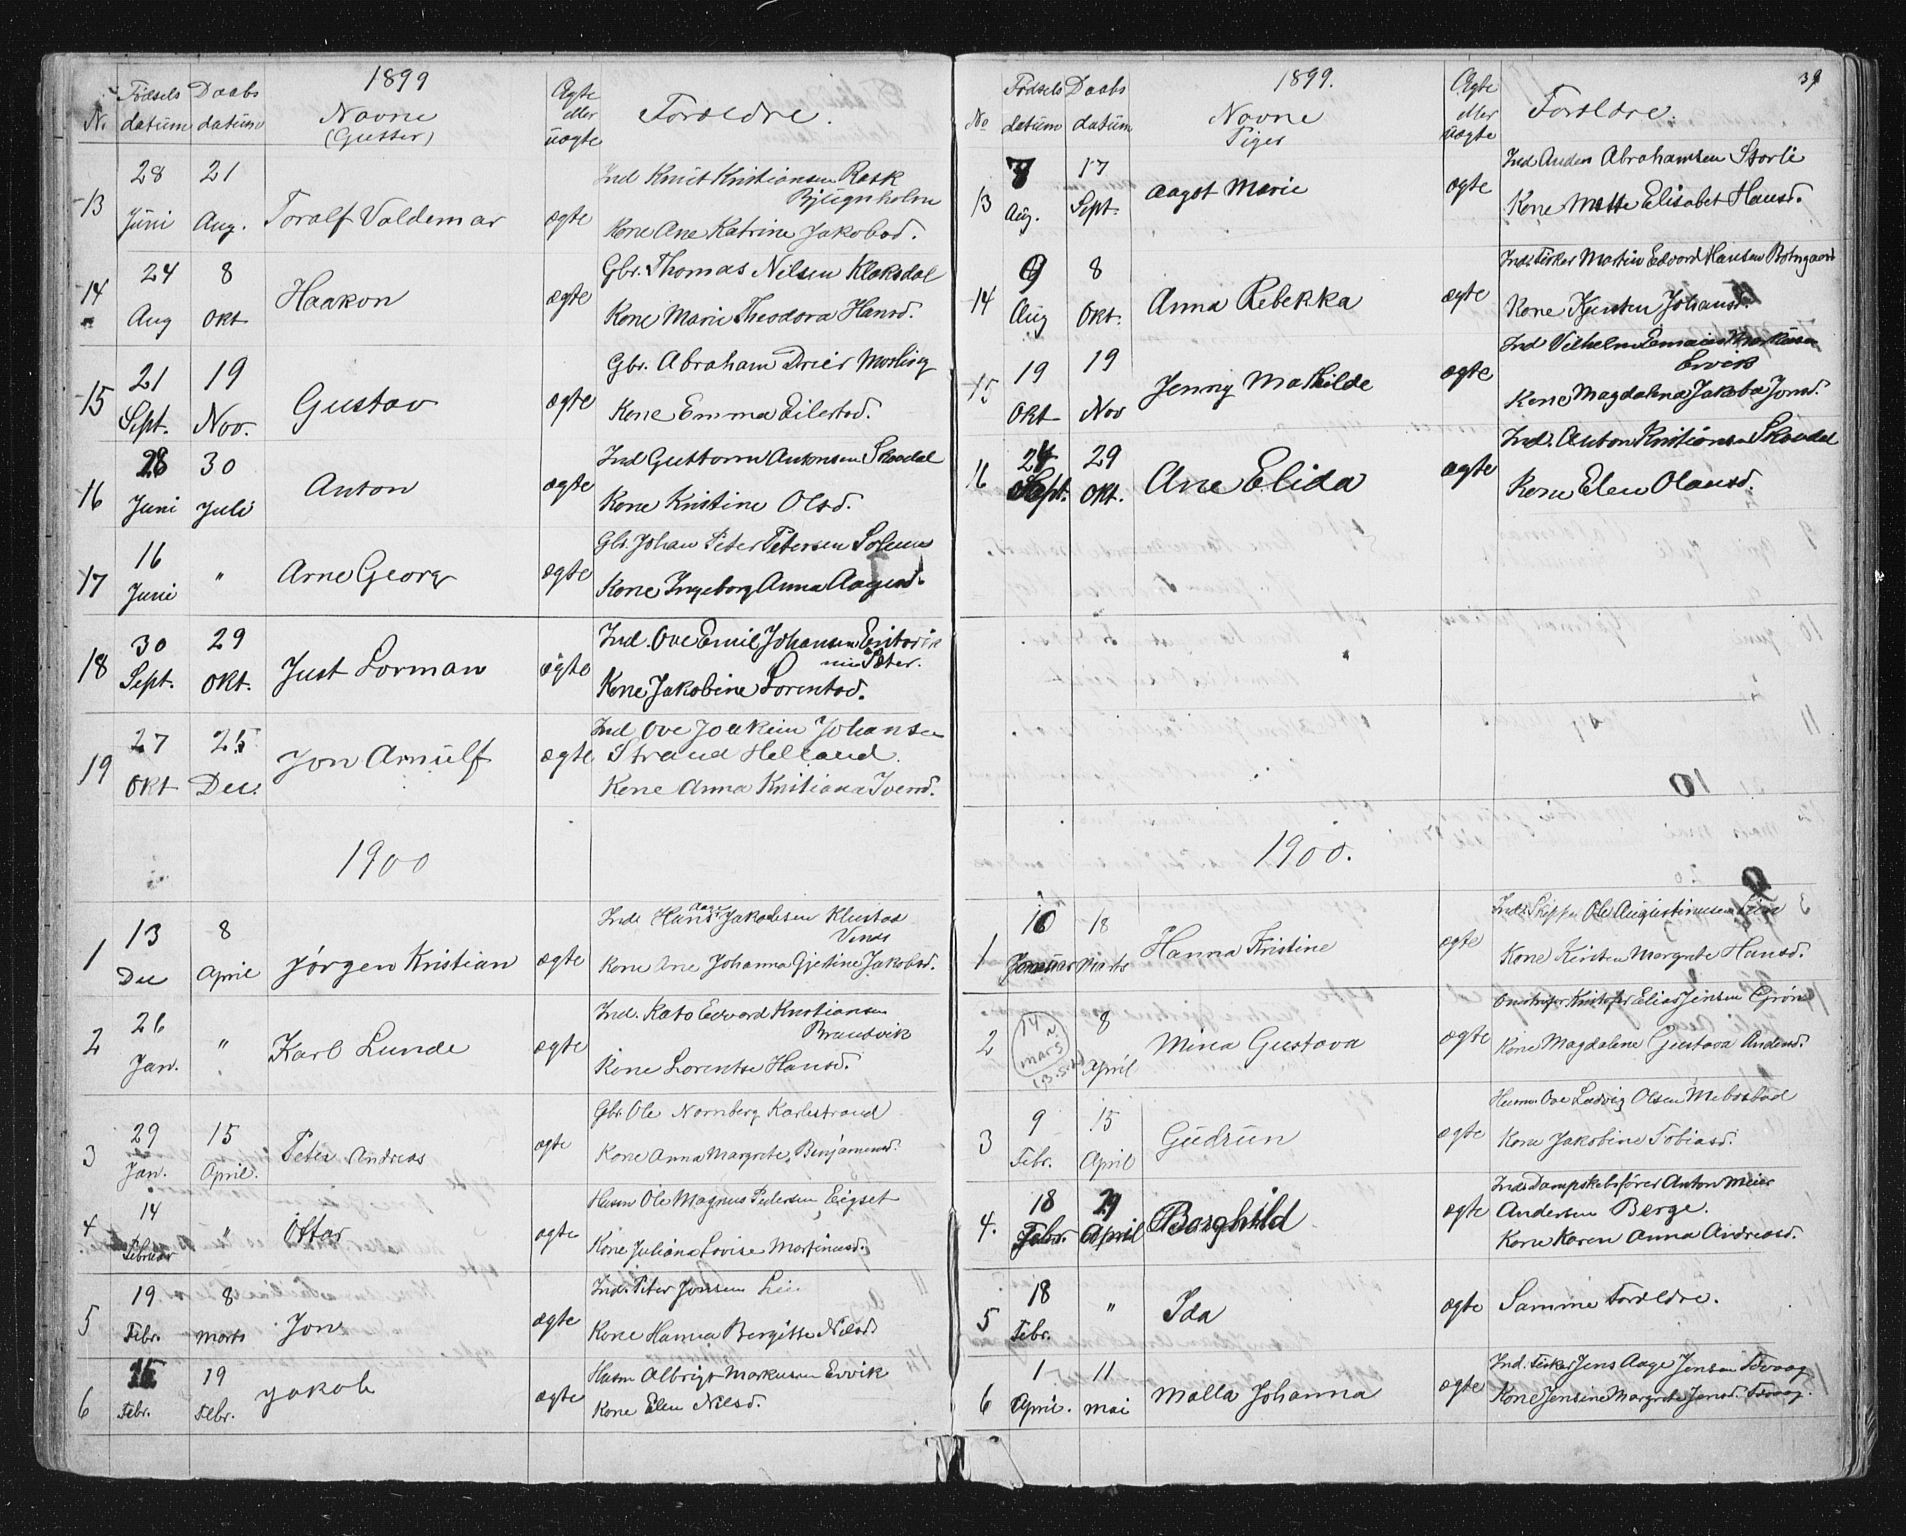 1899
No Fødsels datum Daabs datum Navne (Gutter) Ægte eller uægte Foreldre.
13 28 Juni 21 Aug. Toralf Valdemar ægte Ind Knut Kristiansen Rask Bjugnholm
Kone Ane Katrine Jakobsd.
14 24 Aug 8 Okt Haakon ægte Gbr. Thomas Nilsen Klaksdal
Kone Marie Theodora Hansd.
15 21 Sept. 19 Nov. Gustav ægte Gbr. Abraham Drier
Kone Emma Eilertsd.
16 28 Juni 30 Juli Anton ægte Ind Guttorm Antonsen
Kone Kristine Olsd.
17 16 Juni " Arne Georg ægte Gbr. Johan Peter Petersen Solem
Kone Ingeborg Anna Aagesd.
18 30 Sept. 29 Okt. Just Lorman ægte Ind. Ove Emil Johansen
Kone Jakobine Lorentsd.
19 27 Okt 25 Dec. Jon Arnulf ægte Ind Ove Joakim Johansen
Strand Helland.
Kone Anna Kristiana Ivensd.
1900
1 13 Dec 8 April Jørgen Kristian ægte Ind. Hans Aage Jakobsen
Kone Ane Johanna Gjertine Jakobsd.
2 26 Jan. " Karl Lunde ægte Ind. Kato Edvard Kristiansen
Brandvik
Kone Lorentse Hansd.
3 29 Jan. 15 April. Peter Andreas ægte Gbr. Ole Nornberg Karlestrand
Kone Anna Margrete Benjaminsd.
4 14 Februar " Ottar ægte Husm Ole Magnus Pedersen Eigset
Kone Juliana Lovise Martinusd.
5 19 Febr. 8 Marts Jon ægte Ind. Peter Jonsen Lien
Kone Hanna Bergitte Nilsd.
6 15 Febr. 19 Febr. Jakob ægte Husm Albrigt Markusen Ervik
Kone Elen Nilsd.
39
1899.
No Fødsels datum Daabs datum Navne Piger Ægte eller uægte Foreldre.
13 7 Aug. 17 Sept. Aagot Marie ægte Ind Anders Abrahamsen Storli
Kone Mette Elisabet Hansd.
14 9 Aug 8 Okt. Anna Rebekka ægte Ind. Fisker Martin Edvard Hansen Botngaard
Kone Kjersten Johansd.
15 19 Okt 19 Nov Jenny Mathilde ægte Ind Vilhelm Markusen
Ervik
Kone Magdalena Jakoba Jonsd.
16 24 Sept. 29 Okt. Ane Elida ægte Ind. Anton Kristiansen
Kone Elen Olausd.
10
1900.
1 10 Januar 18 Marts Hanna Kristine ægte Ind. Skipper Ole Augustinusen Lien
Kone Kirsten Margrete Hansd.
2 14 Mars 8 April Mina Gustava ægte Kristofer Elias Jensen Grøn
Kone Magdalene Gustava Andersd.
3 9 Febr. 15 April Gudrun ægte Husm. Ove Ludvig Olsen Mebostad
Kone Jakobine Tobiasd.
4. 18 Febr. 29 April Borghild ægte Ind. Dampskibsfører Anton Meier
Andersen Berge.
Kone Karen Anna Andreasd.
5 18 Febr. " Ida ægte Samme Foreldre.
6 1 April. 11 Mai Malla Johanna ægte Ind. Fisker Jens Aage Jensen
Kone Jensine Margrete Jensd.